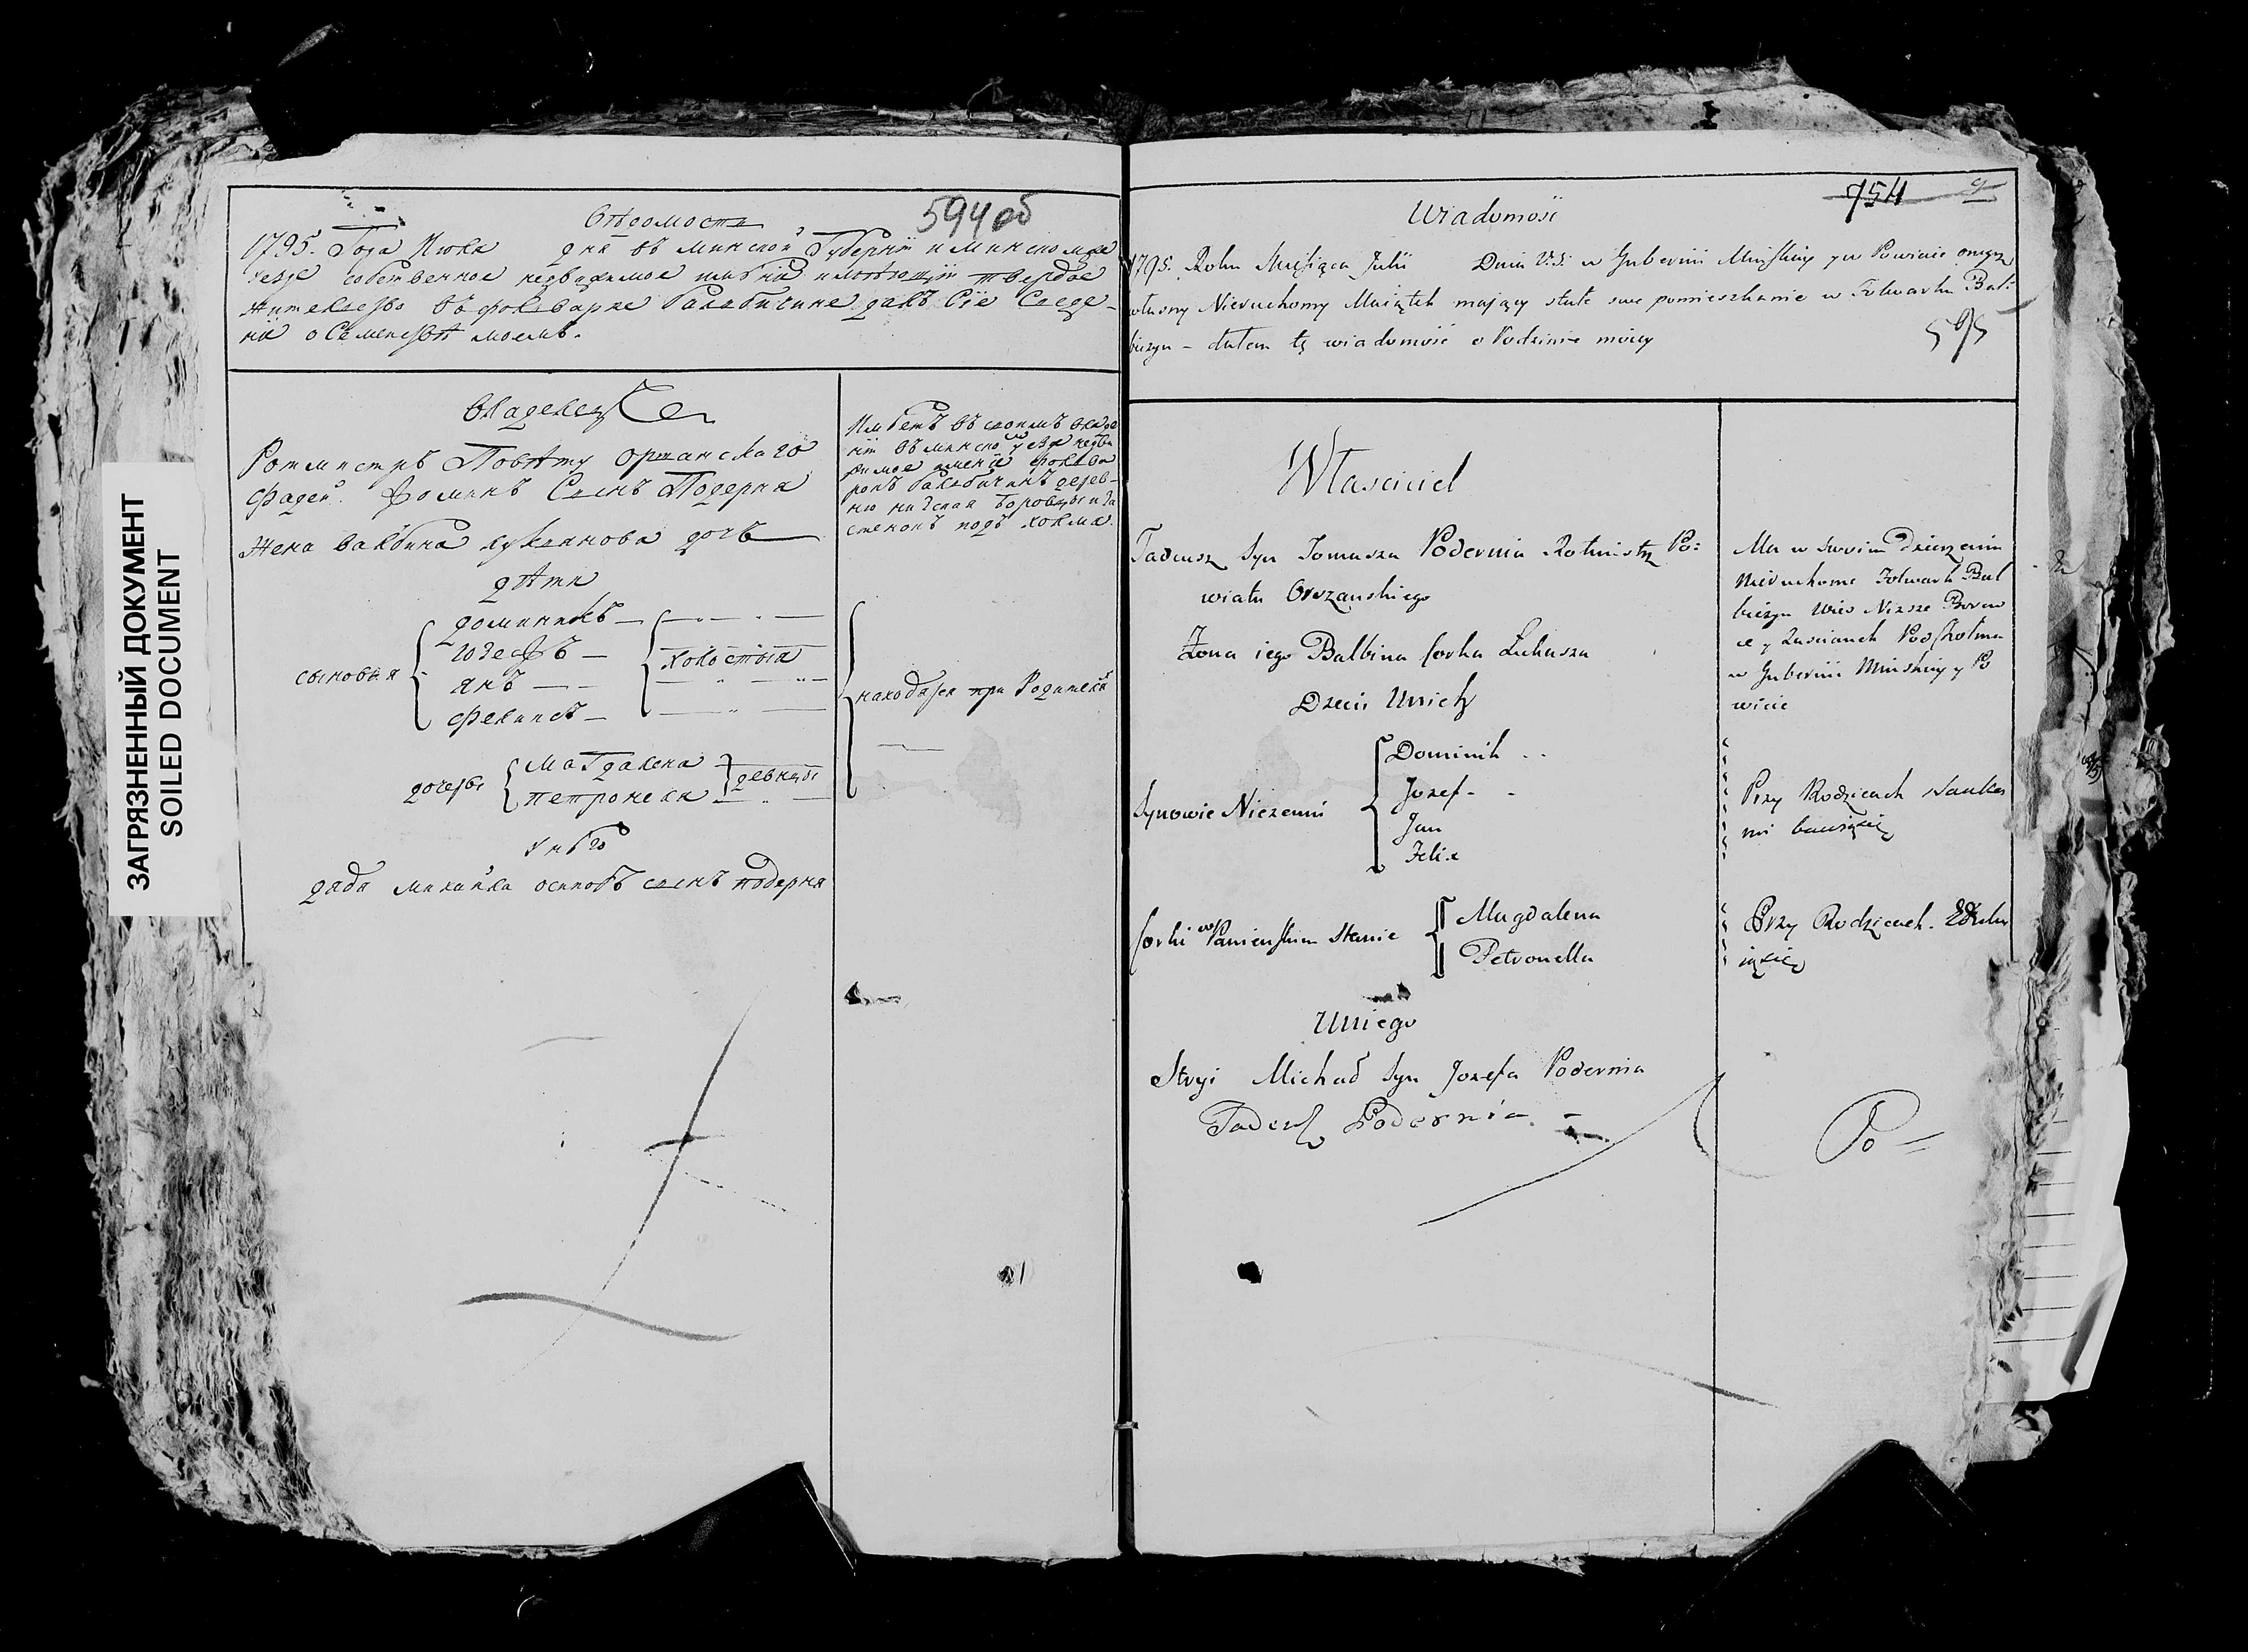 ЗАГРЯЗНЕННЫЙ ДОКУМЕНТ
SOILED DOCUMENT
594 об
Вѣдомость
1795. Года Июля дня въ минской Губерніи и минскомъ
уезде собственное недвижимое имѣніе имѣющій твердое
жительство въ фольварке балбычине далъ Сіе Сведе-
ніе о Семействѣ моемъ.
Владелец
Ротмистръ Повѣту оршанского
Фадей Фоминъ Сынъ Подерня
Жена балбина лукьянова дочь
дѣти
сыновья
доминикъ
юзефъ
янъ
феликсъ
холостыя
находятся при Родителях
дочери
Магдалена
петронеля
девицы
у него
дядя михайла осиповъ сынъ подерня
Имѣетъ въ своемъ владе
ніи въ минском уезде недви
жимое имение фольва
рокъ балбычинъ дерев-
ню низския боровцы и за
стенокъ подъ холма.
754
Wiadomość
1795. Roku Miesiąca Julii Dnia V.S. w Gubernii Minskiey y w Powiecie onegoż
własny Nieruchomy Maiątek maiący stałe swe pomieszkanie w Folwarku Bal-
biczyn - dałem tę wiadomość o Rodzinie moiey
595
Właściciel
Tadeusz Syn Tomasza Podernia Rotmistrz Po:
wiatu Orszanskiego
Żona iego Balbina Corka Łukasza
Dzieci Unich
Synowie Niezenni
Dominik
Jozef
Jan
Felix
Corki w Panienskim Stanie
Magdalena
Petronella
Uniego
Stryi Michał Syn Jozefa Podernia
Tadeusz Podernia
Ma w swoim dzierżeniu
Nieruchome Folwark Bal
biczyn Wieś Nizsze Borow
ce y Zascianek Pod Chołma
w Gubernii Minskiey y Po
wiecie
Przy Rodzicach Naukа
mi bawiącie
Przy Rodzicach
Po